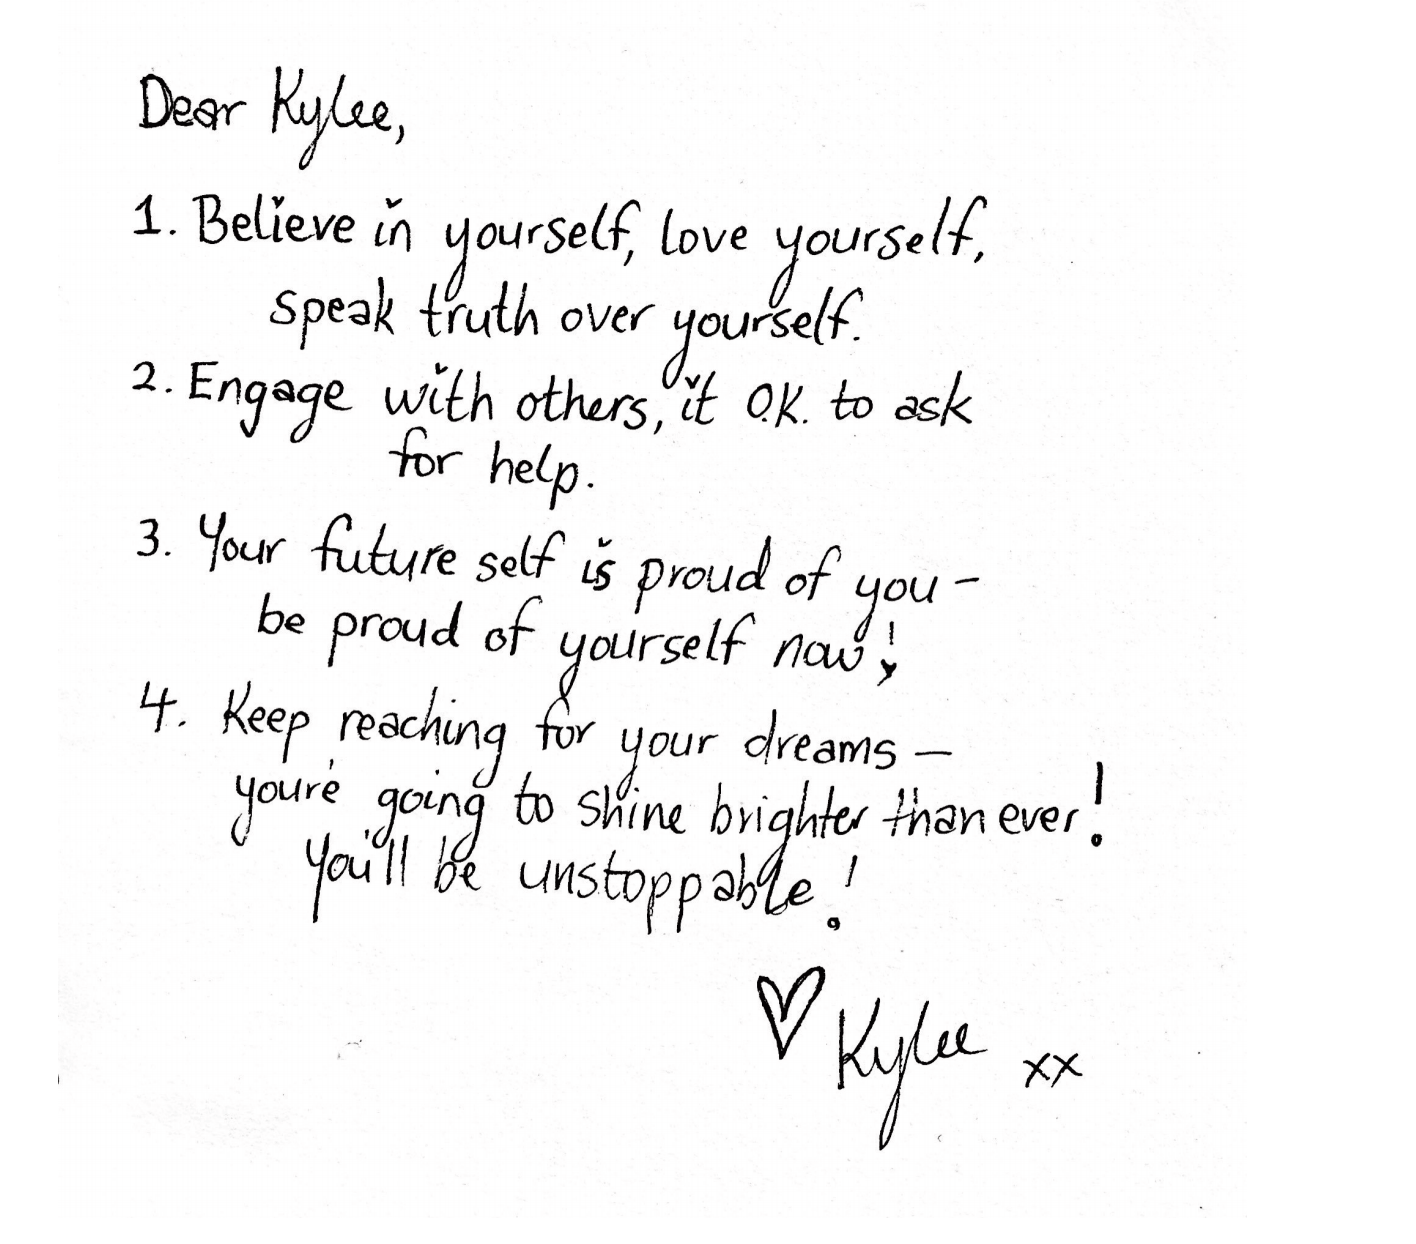 Dear Kylee,
1. Believe in yourself, love yourself,
speak truth over yourself.
2. Engage with others, it O.K. to ask
for help.
3. Your future self is proud of you -
be proud of yourself now!
4. Keep reaching for your dreams -
you're going to shine brighter than ever!
You'll be unstoppable!
♡ Kylee xx